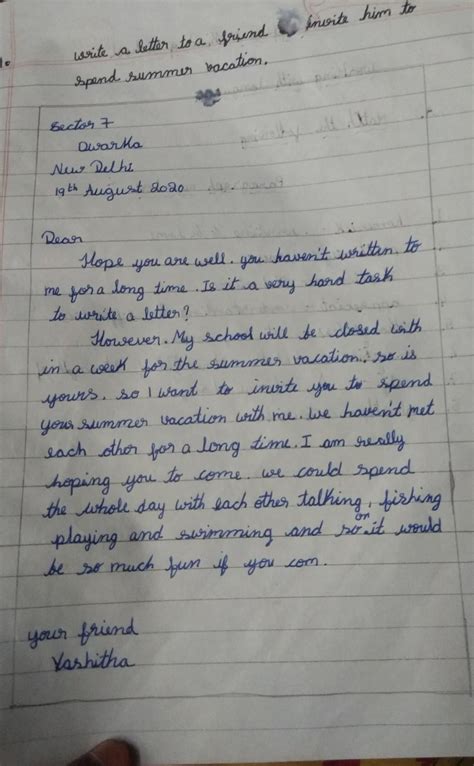 1. write a letter to a friend invite him to
spend summer vacation.
Sector 7
Dwarka
New Delhi
19th August 2020
Dear
Hope you are well. you haven't written to
me for a long time. Is it a very hard task
to write a letter?
However. My school will be closed with
in a week for the summer vacation. so is
yours. so I want to invite you to spend
your summer vacation with me. we haven't met
each other for a long time. I am really
hoping you to come. we could spend
the whole day with each other talking, fishing
playing and swimming and so on it would
be so much fun if you com.
your friend
Yashitha